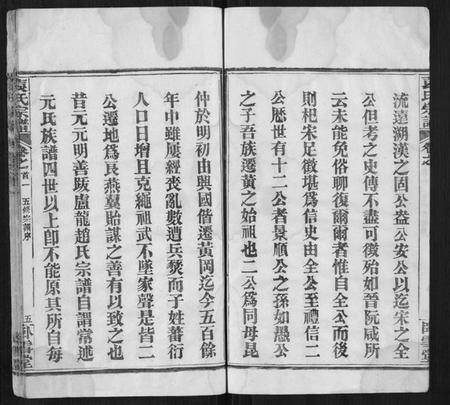 流遠溯漢之固公盎公安公以迄宋之全
公但考之史傳不盡可徵殆如晉阮咸所
云未能免俗聊復爾爾者惟自全公而後
則杞宋足徵堪爲信史由全公至禮信二
公歷世有十二公者景順公之孫如愚公
之子吾族遷黃之始祖也二公爲同母昆
仲於明初由興國偕遷黃岡迄今五百餘
年中雖屢經喪亂數遭兵燹而子姓蕃衍
人口日增且克繩祖武不墜家聲是皆二
公遷地爲良燕翼貽謀之善有以致之也
昔元元明善跋盧龍趙氏宗譜自謂常述
元氏族譜四世以上卽不能原其所自每
袁氏宗譜
卷之首一
五修宗譜序
五